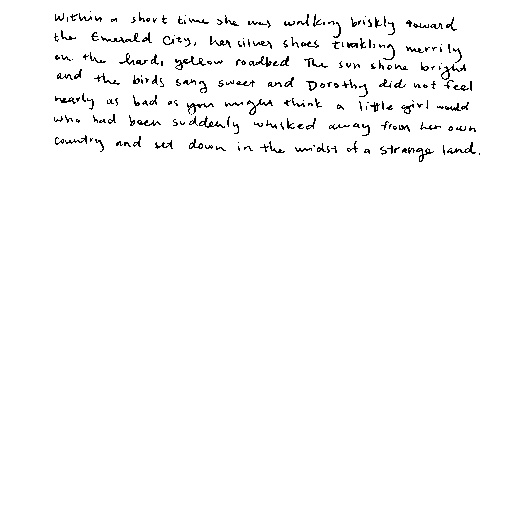 Within a short time she was walking briskly toward
the Emerald City, her silver shoes tinkling merrily
on the hard, yellow roadbed The sun shone bright
and the birds sang sweet and Dorothy did not feel
nearly as bad as you might think a little girl would
who had been suddenly whisked away from her own
country and set down in the midst of a strange land.